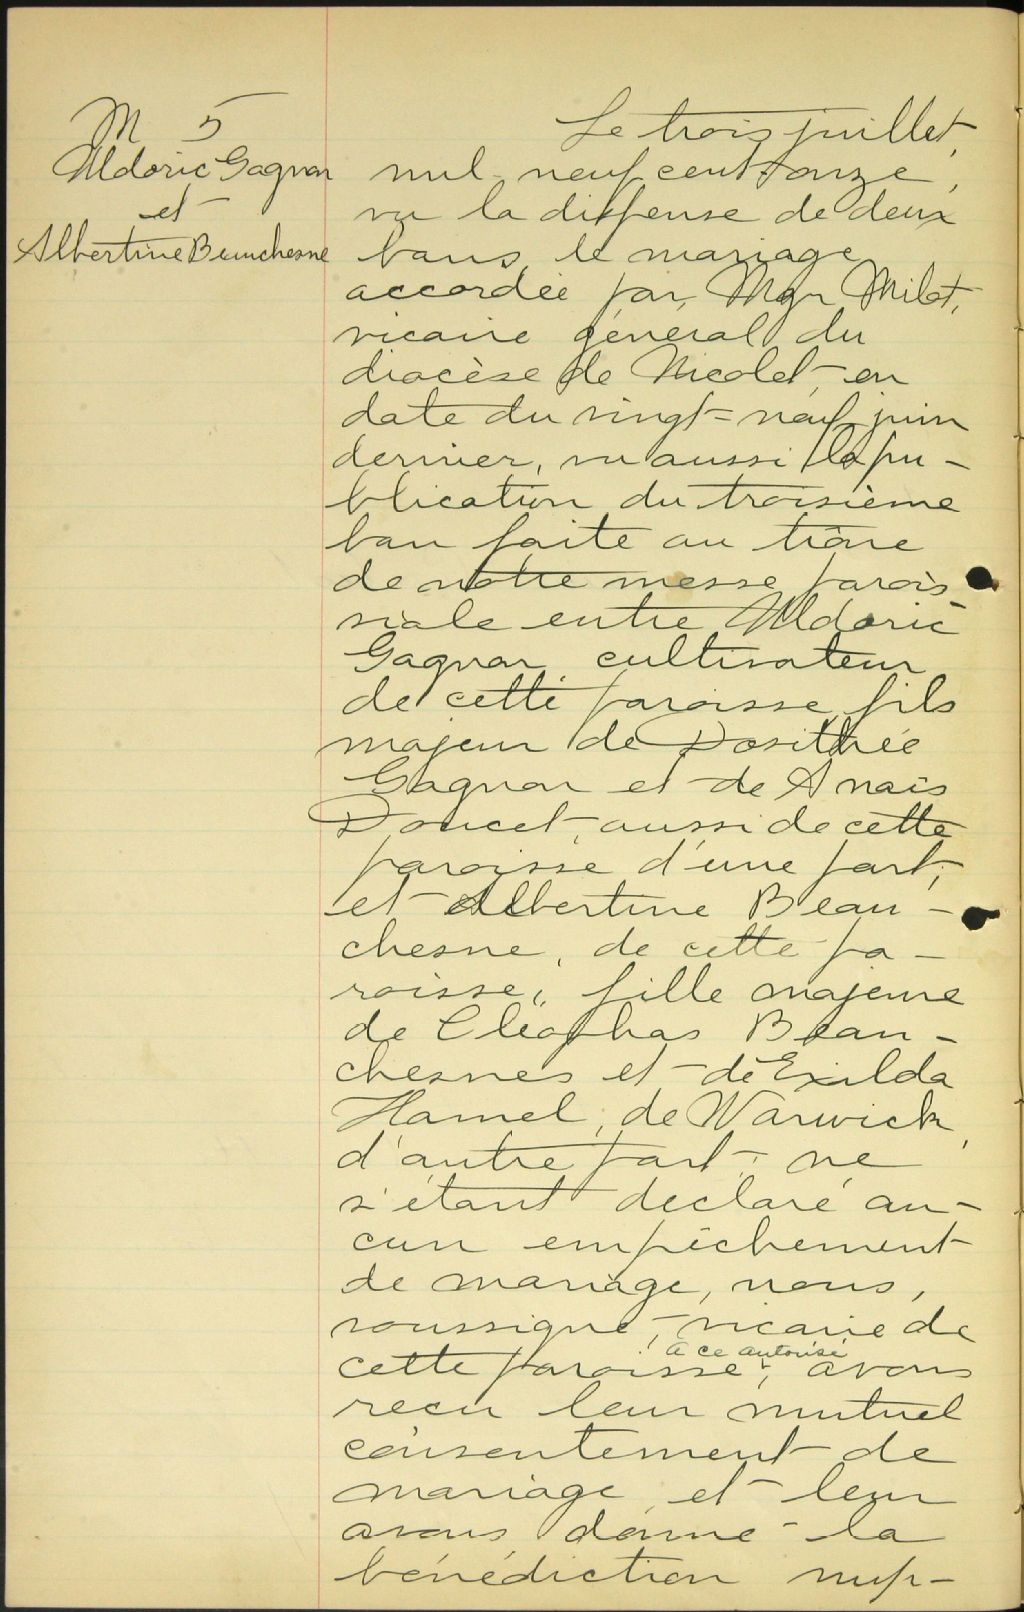 M 5
Uldoric Gagnon
et
Albertine Beauchesne
Le trois juillet,
mil-neuf cent onze,
vu la dispense de deux
bans de mariage
accordée par Mgr Milot,
vicaire général du
diocèse de Nicolet, en
date du vingt-neuf juin
dernier, vu aussi la pu-
blication du troisième
ban faite au prône
de notre messe parois-
siale entre Uldoric
Gagnon, cultivateur
de cette paroisse, fils
majeur de Dosithée
Gagnon et de Anaïs
Doucet, aussi de cette
paroisse d'une part;
et Albertine Beau-
chesne, de cette pa-
roisse, fille majeure
de Cléophas Beau-
chesnes et de Exilda
Hamel, de Warwick,
d'autre part; ne
s'étant déclaré au-
cun empêchement
de mariage, nous,
soussigné, vicaire de
cette paroisse, à ce autorisé, avons
reçu leur mutuel
consentement de
mariage et leur
avons donné la
bénédiction nup-